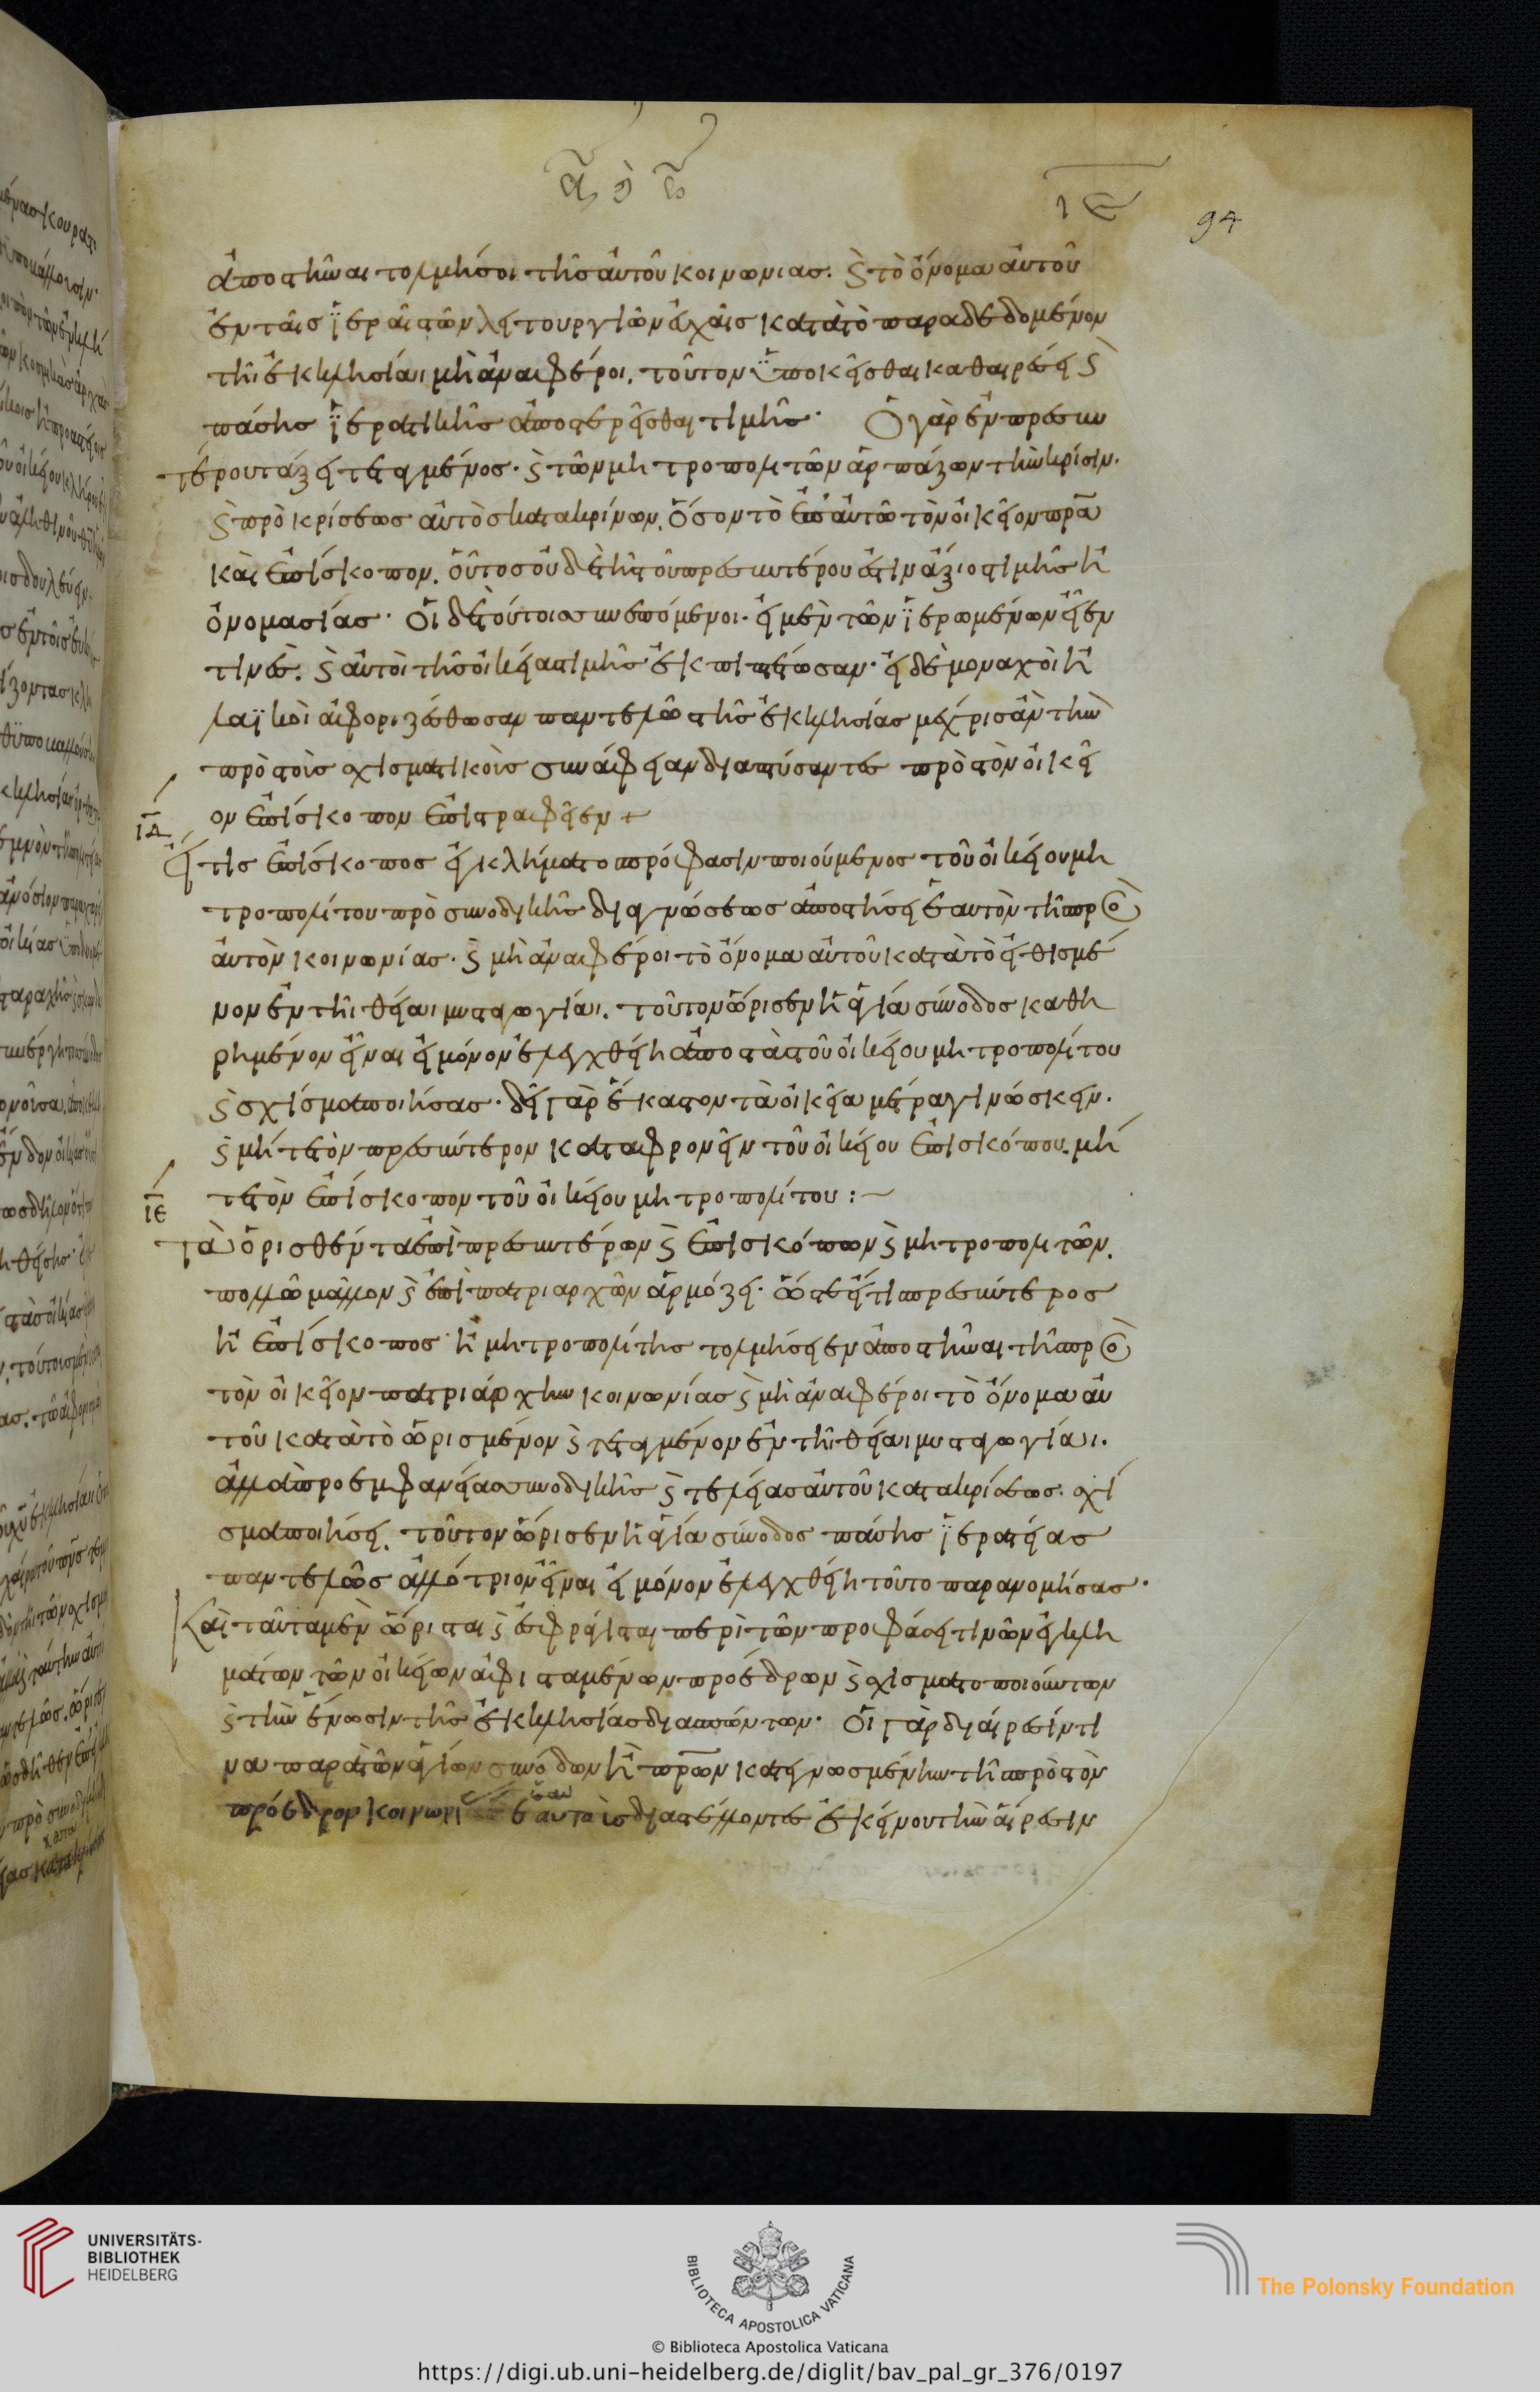 94
ἀποστῆναι τολμήσοι τῆς αὐτοῦ κοινωνιας. ϗ τὸ ὄνομα αὐτοῦ
ἐν ταῖς ἱεραῖς τῶν λειτουργιῶν εὐχαῖς κατὰ τὸ παραδεδομένον
τῆι ἐκκλησίαι μὴ ἀναφέροι. τοῦτον ὑποκεῖσθαι καθαιρέσει ϗ
πάσης ἱερατικῆς ἀποστερεῖσθαι τιμῆς· Ὁ γὰρ ἐν πρεσβυ
τέρου τάξει τεταγμένος· ϗ τῶν μητροπολιτῶν ἁρπάζων τὴν κρίσιν.
ϗ πρὸ κρίσεως αὐτὸς κατακρίνων, ὅσον τὸ ἐπ' αὐτῶ τὸν οἰκεῖον πρα
καὶ ἐπίσκοπον. οὗτος οὐδὲ τῆς τοῦ πρεσβυτέρου ἐστὶν ἄξιος τιμῆς ἢ
ὀνομασίας· Οἱ δὲ τούτοις συνεπόμενοι· εἰ μὲν τῶν ἱερωμένων εἶεν
τινές. ϗ αὐτοὶ τῆς οἰκείας τιμῆς ἐκπιπτέωσαν· εἰ δὲ μοναχοὶ ἢ
λαϊκοὶ ἀφοριζέσθωσαν παντελῶς τῆς ἐκκλησίας μέχρις ἂν τὴν
πρὸς τοὺς σχισματικοὺς συνάφειαν διαπτύσαντες πρὸς τὸν οἰκεῖ
ον ἐπίσκοπον ἐπιστραφεῖεν +
ΙΔ
Εἴ τις ἐπίσκοπος ἐγκλήματος πρόφασιν ποιούμενος τοῦ οἰκείου μη
τροπολίτου πρὸ συνοδικῆς διαγνώσεως ἀποστήσει ἑαυτὸν τῆς πρὸς
αὐτὸν κοινωνίας· ϗ μὴ ἀναφέροι τὸ ὄνομα αὐτοῦ κατὰ τὸ εἰθισμέ
νον ἐν τῆι θείαι μυσταγωγίαι. τοῦτον ὥρισεν ἡ ἁγία σύνοδος καθη
ρημένον εἶναι εἰ μόνον ἐλεγχθείη ἀποστὰς τοῦ οἰκείου μητροπολίτου
ϗ σχίσμα ποιήσας· δεῖ γὰρ ἕκαστον τὰ οἰκεῖα μέτρα γινώσκειν.
ϗ μήτε τὸν πρεσβύτερον καταφρονεῖν τοῦ οἰκείου ἐπισκόπου. μή
τε τὸν ἐπίσκοπον τοῦ οἰκείου μητροπολίτου :~
ΙΕ
Τὰ ὁρισθέντα ἐπὶ πρεσβυτέρων ϗ ἐπισκόπων ϗ μητροπολιτῶν.
πολλῶ μᾶλλον ϗ ἐπὶ πατριαρχῶν ἁρμόζει· ὥστε εἴ τις πρεσβύτερος
ἢ ἐπίσκοπος ἢ μητροπολίτης τολμήσειεν ἀποστῆναι τῆς πρὸς
τὸν οἰκεῖον πατριάρχην κοινωνίας ϗ μὴ ἀναφέροι τὸ ὄνομα αὐ
τοῦ κατὰ τὸ ὡρισμένον ϗ τεταγμένον ἐν τῆι θείαι μυσταγωγίαι.
ἀλλὰ πρὸ ἐμφανείας συνοδικῆς ϗ τελείας αὐτοῦ κατακρίσεως. σχί
σμα ποιήσει. τοῦτον ὥρισεν ἡ ἁγία σύνοδος πάσης ἱερατείας
παντελῶς ἀλλότριον εἶναι εἰ μόνον ἐλεγχθείη τοῦτο παρανομήσας·
Καὶ ταῦτα μὲν ὥρισται ϗ ἐσφράγισται περὶ τῶν προφάσει τινῶν ἐγκλη
μάτων τῶν οἰκείων ἀφισταμένων προέδρων ϗ σχίσμα ποιούντων
ϗ τὴν ἕνωσιν τῆς ἐκκλησίας διασπώντων· Οἱ γὰρ δι' αἵρεσίν τι
να παρὰ τῶν ἁγίων συνόδων ἢ πρων κατεγνωσμένην τῆς πρὸς τὸν
πρόεδρον κοινωνι ἑαυτοὺς διαστέλλοντες ἐκείνου τὴν αἵρεσιν
UNIVERSITÄTS-
BIBLIOTHEK
HEIDELBERG
BIBLIOTECA APOSTOLICA VATICANA
The Polonsky Foundation
© Biblioteca Apostolica Vaticana
https://digi.ub.uni-heidelberg.de/diglit/bav_pal_gr_376/0197